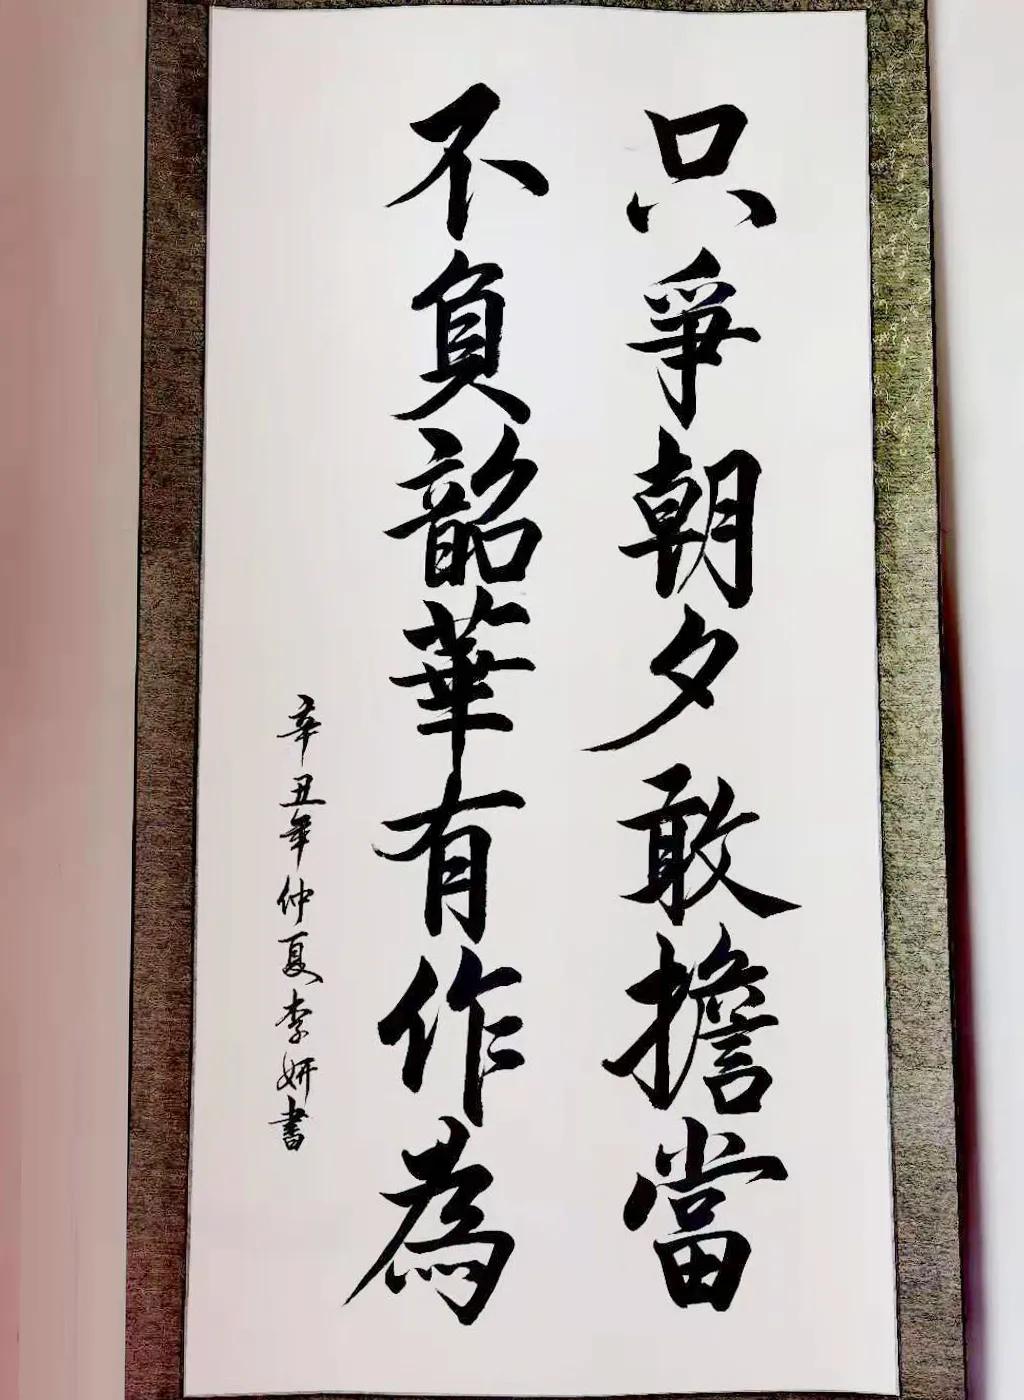 只爭朝夕敢擔當
不負韶華有作為
辛丑年仲夏李妍書